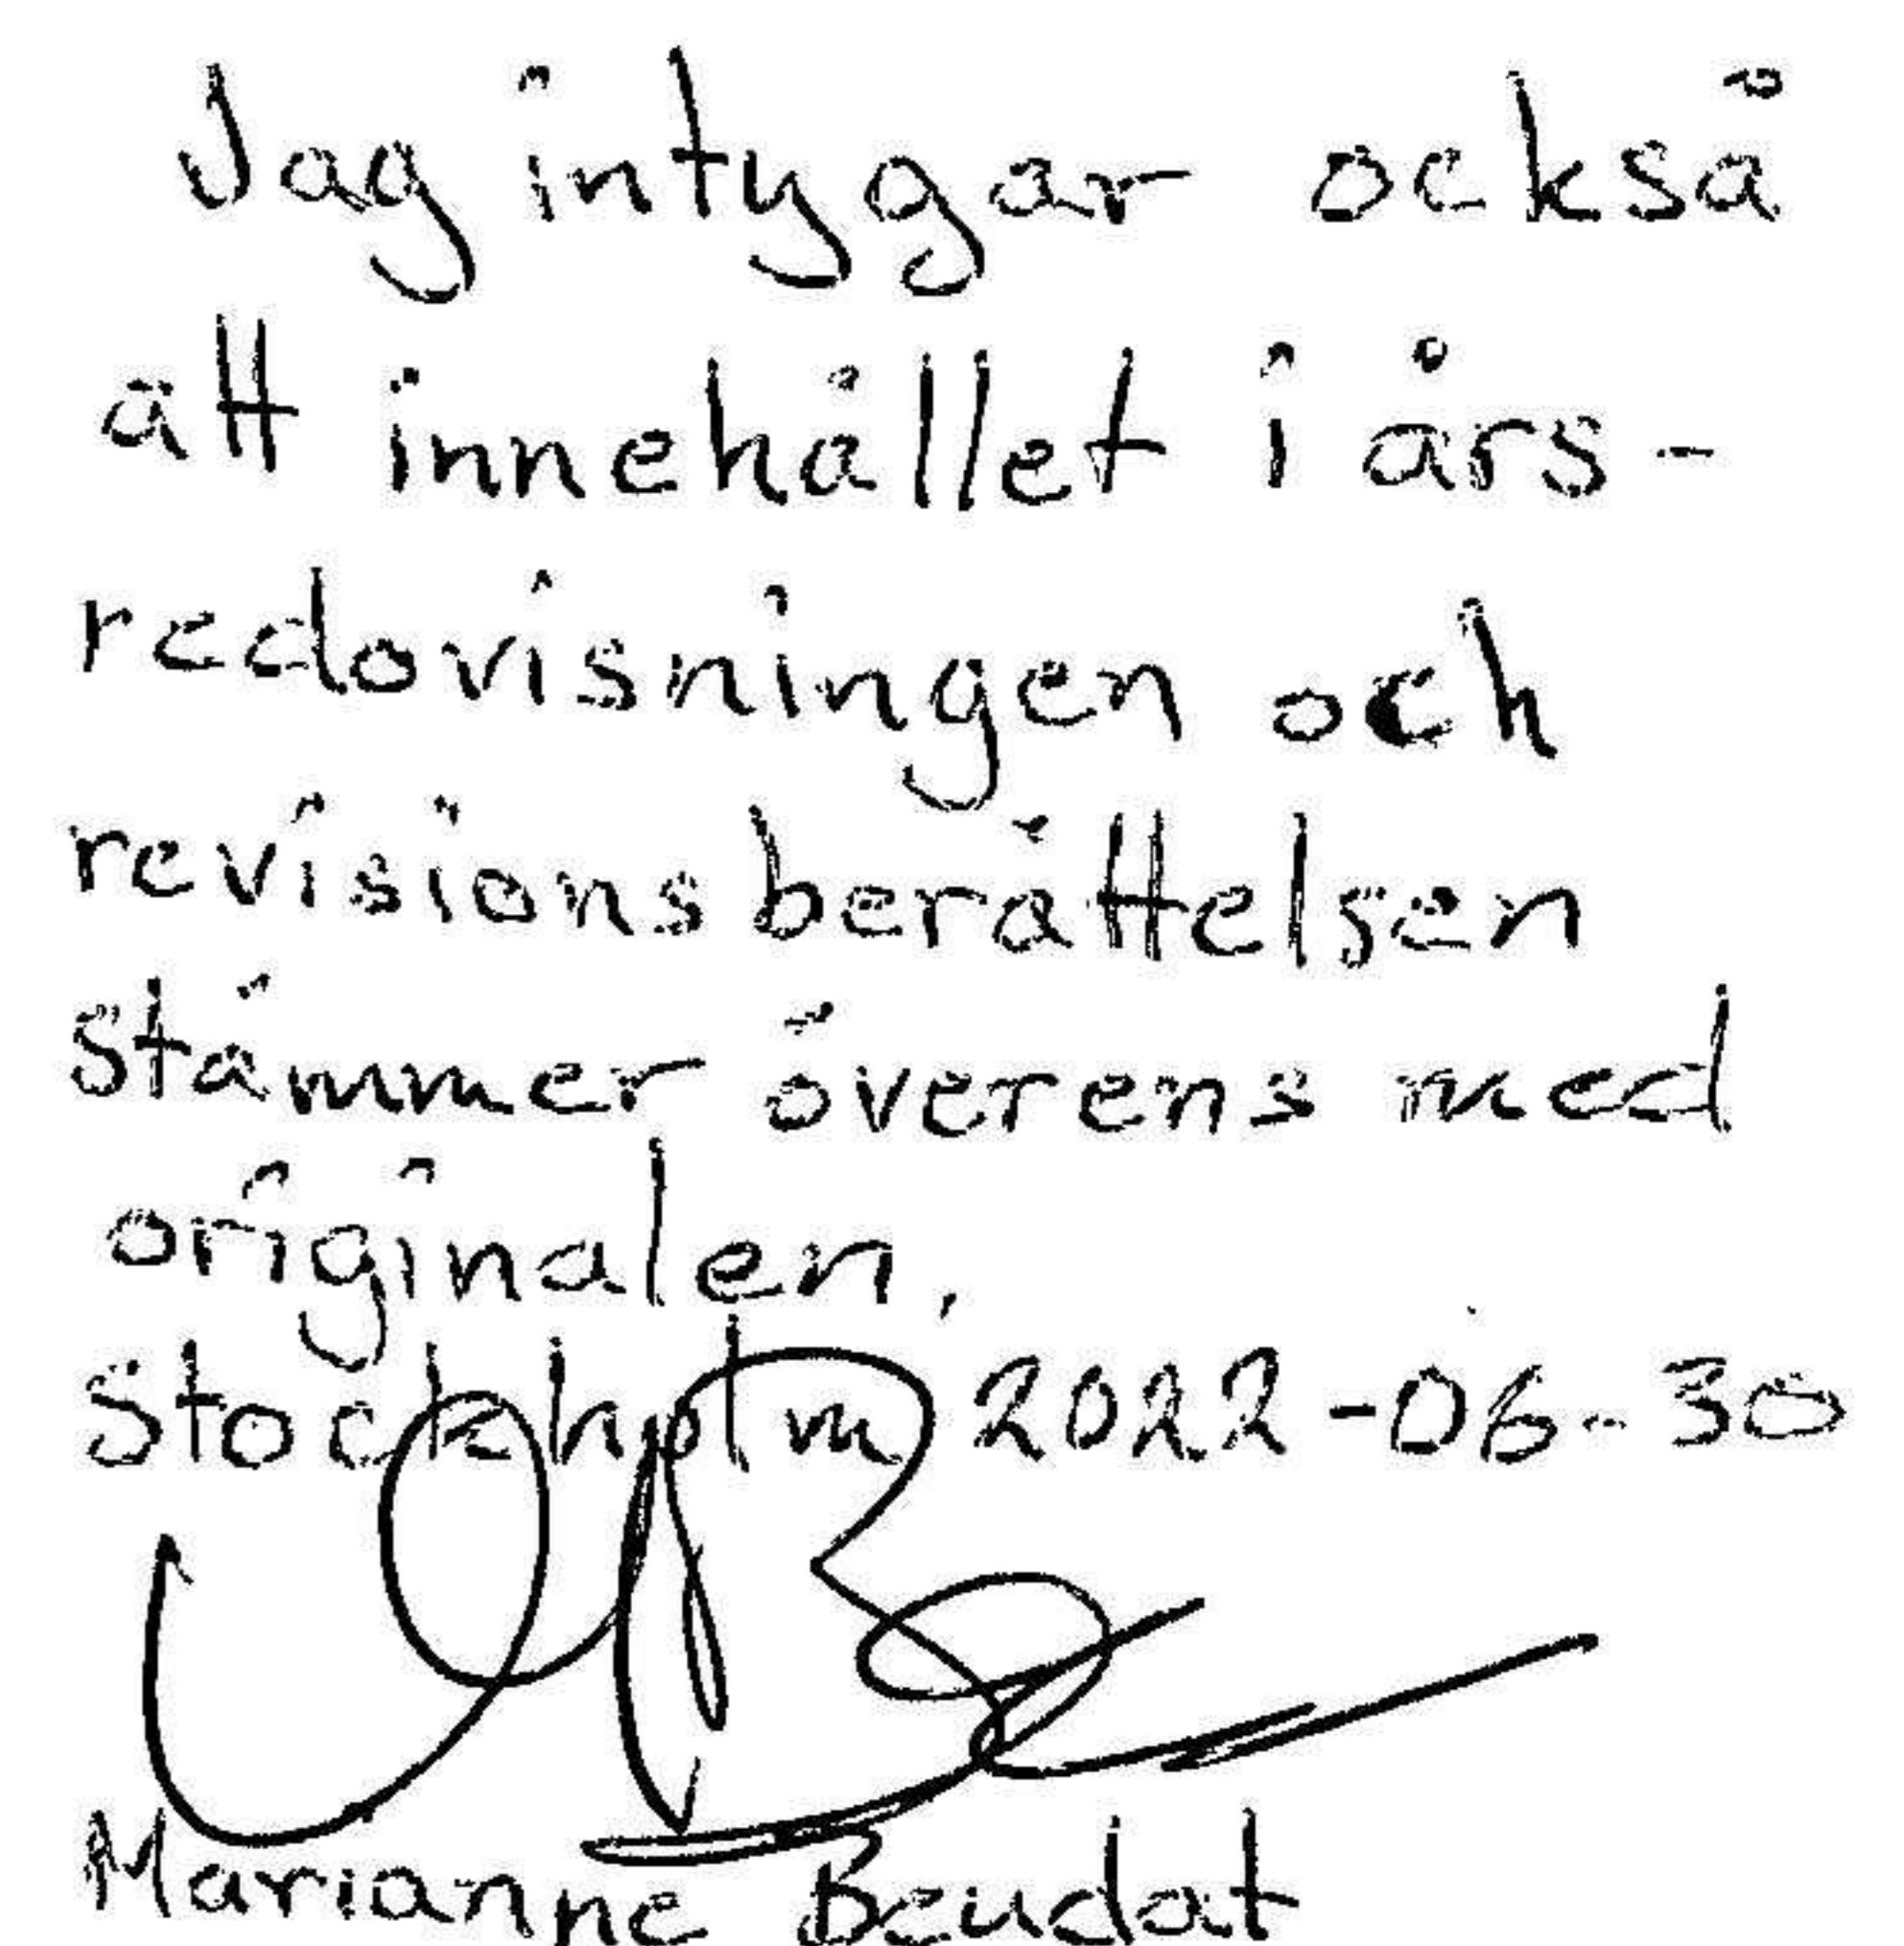 Jag intygar också
att innehållet i års-
redovisningen och
revisionsberättelsen
stämmer överens med
originalen.
Stockholm 2022-06-30
Marianne Beudat